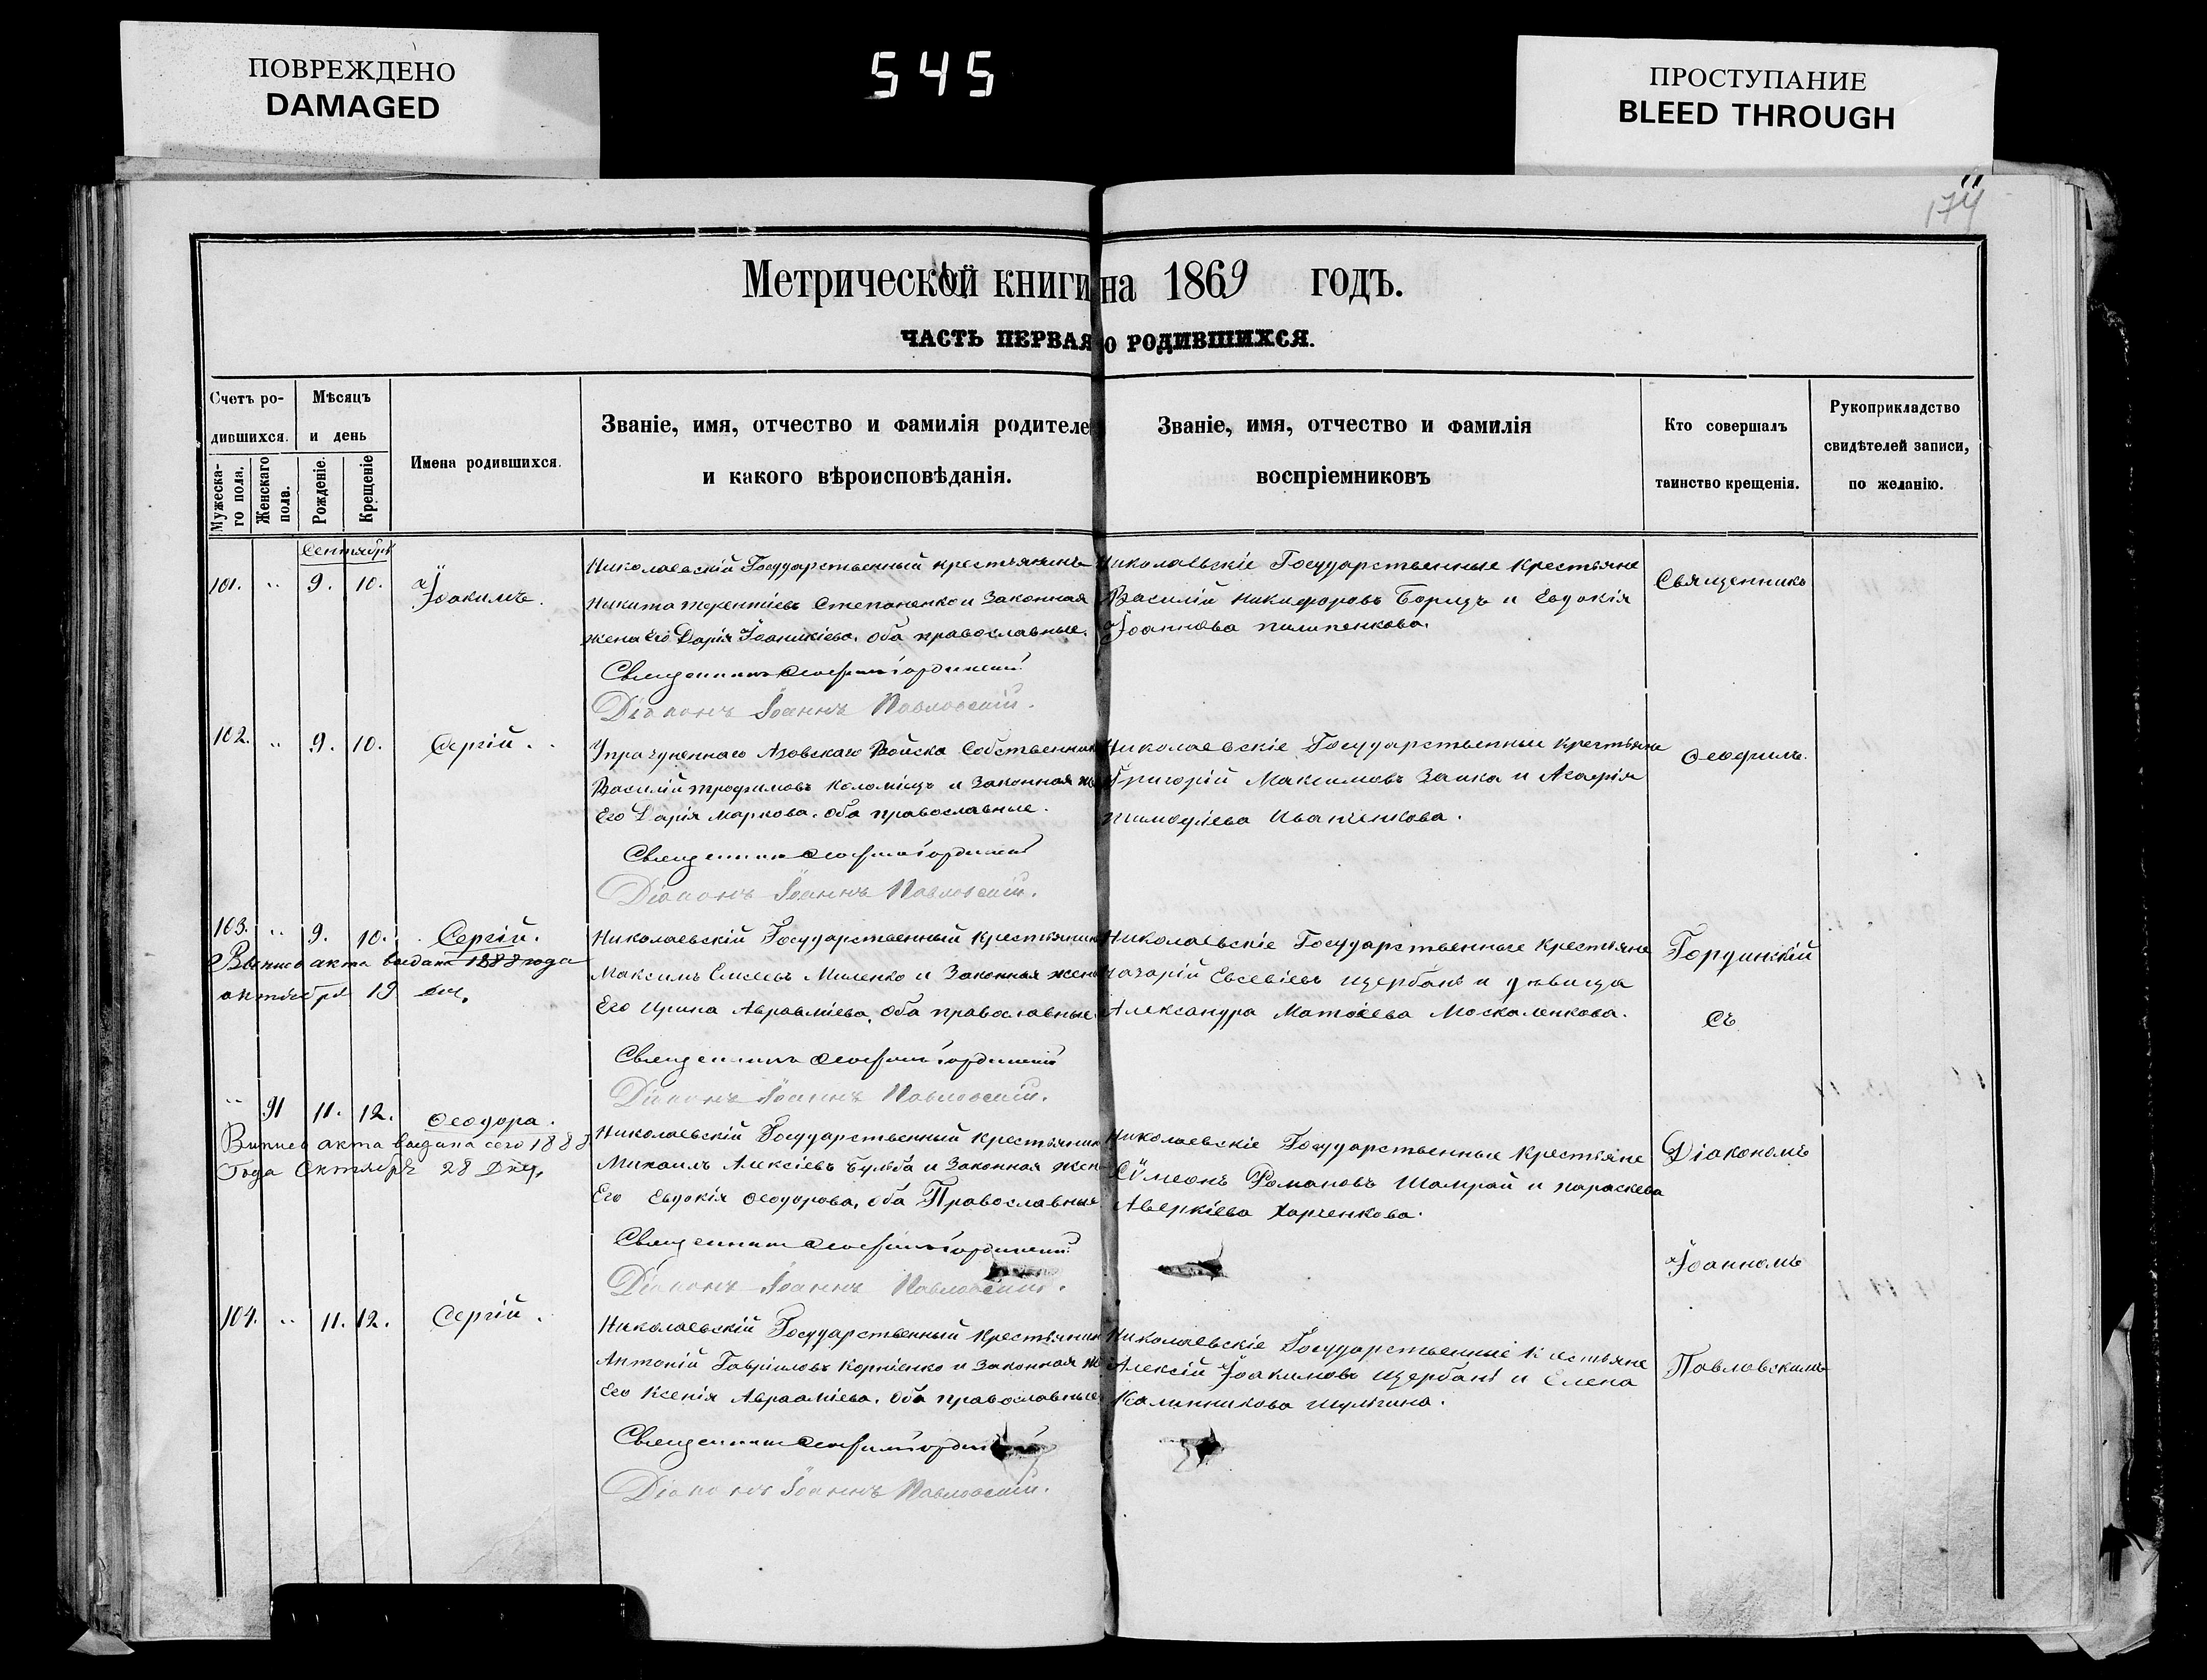 ПОВРЕЖДЕНО
DAMAGED
545
ПРОСТУПАНИЕ
BLEED THROUGH
174
Метрической книги на 1869 годъ.
ЧАСТЬ ПЕРВАЯ О РОДИВШИХСЯ.
Счетъ родившихся.
Мужескаго пола.
Женскаго пола.
Мѣсяцъ и день
Рожденіе.
Крещеніе
Имена родившихся.
Званіе, имя, отчество и фамилія родителе
и какого вѣроисповѣданія.
Званіе, имя, отчество и фамилія
воспріемниковъ
Кто совершалъ
таинство крещенія.
Рукоприкладство
свидѣтелей записи,
по желанію.
Сентябрь
101. " 9. 10. Іоакимъ.
Николаевскій Государственный крестьянинъ
Никита Терентіевъ Степаненко и Законная
жена Его Дарія Іоаникіева. оба православные.
Николаевскіе Государственные Крестьяне
Василій Никифоровъ Борецъ и Евдокія
Іоаннова Пилипенкова.
Священникъ
Священникъ Ѳеофилъ Гординскій
Діаконъ Іоаннъ Павловскій.
102. " 9. 10. Сергій.
Упразднennаго Азовскаго Войска Собственник
Василій Трофимовъ Коломіецъ и Законная же
Его Дарія Маркова. оба православные.
Николаевскіе Государственные Крестьяне
Григорій Максимовъ Заика и Агафія
Тимофіева Иванченкова.
Ѳеофилъ
Священникъ Ѳеофилъ Гординскій
Діаконъ Іоаннъ Павловскій.
103. " 9. 10. Сергій.
Выпись акта выдана 1888 года
октября 19 дня.
Николаевскій Государственный Крестьянин
Максимъ Елисеевъ Миленко и Законная жена
Его Ирина Аврааміева. Оба православные
Николаевскіе Государственные Крестьяне
Захарій Евсевіевъ Щербань и дѣвица
Александра Матвіева Москаленкова.
Гординскій
съ
Священникъ Ѳеофилъ Гординскій
Діаконъ Іоаннъ Павловскій.
" 91 11. 12. Ѳеодора.
Выпись акта выдана сего 1888
Года Октября 28 Дня.
Николаевскій Государственный Крестьянин
Михаилъ Алексіевъ Бульба и Законная жен
Его Евдокія Ѳеодорова, оба Православные
Николаевскіе Государственные Крестьяне
Сѵмеонъ Романовъ Шамрай и Параскева
Аверкіева Харченкова.
Діакономъ
Іоанномъ
Священникъ Ѳеофилъ Гординскій
Діаконъ Іоаннъ Павловскій.
104. " 11. 12. Сергій.
Николаевскій Государственный Крестьянин
Антоній Гавріиловъ Корніенко и Законная же
Его Ксенія Авраамієва. Оба православные
Николаевскіе Государственные Крестьяне
Алексій Іоакимовъ Щербань и Елена
Калинникова Шульгина.
Павловскимъ
Священникъ Ѳеофилъ Гординскій
Діаконъ Іоаннъ Павловскій.